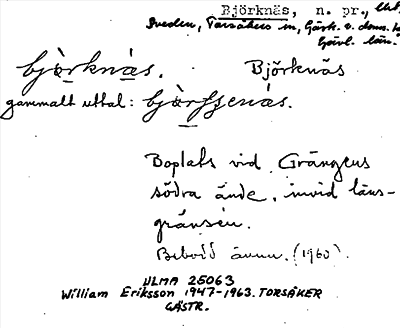 Björknäs, n. pr.,
Sveden, Torsåkers sn, Gästr. o. doms.
Gävl. län.
björknäs. Björknäs
gammalt uttal: björssenäs.
Boplats vid Grängens
södra ände, invid läns-
gränsen.
Bebodd ännu. (1960).
ULMA 25063
William Eriksson 1947-1963. TORSÅKER
GÄSTR.